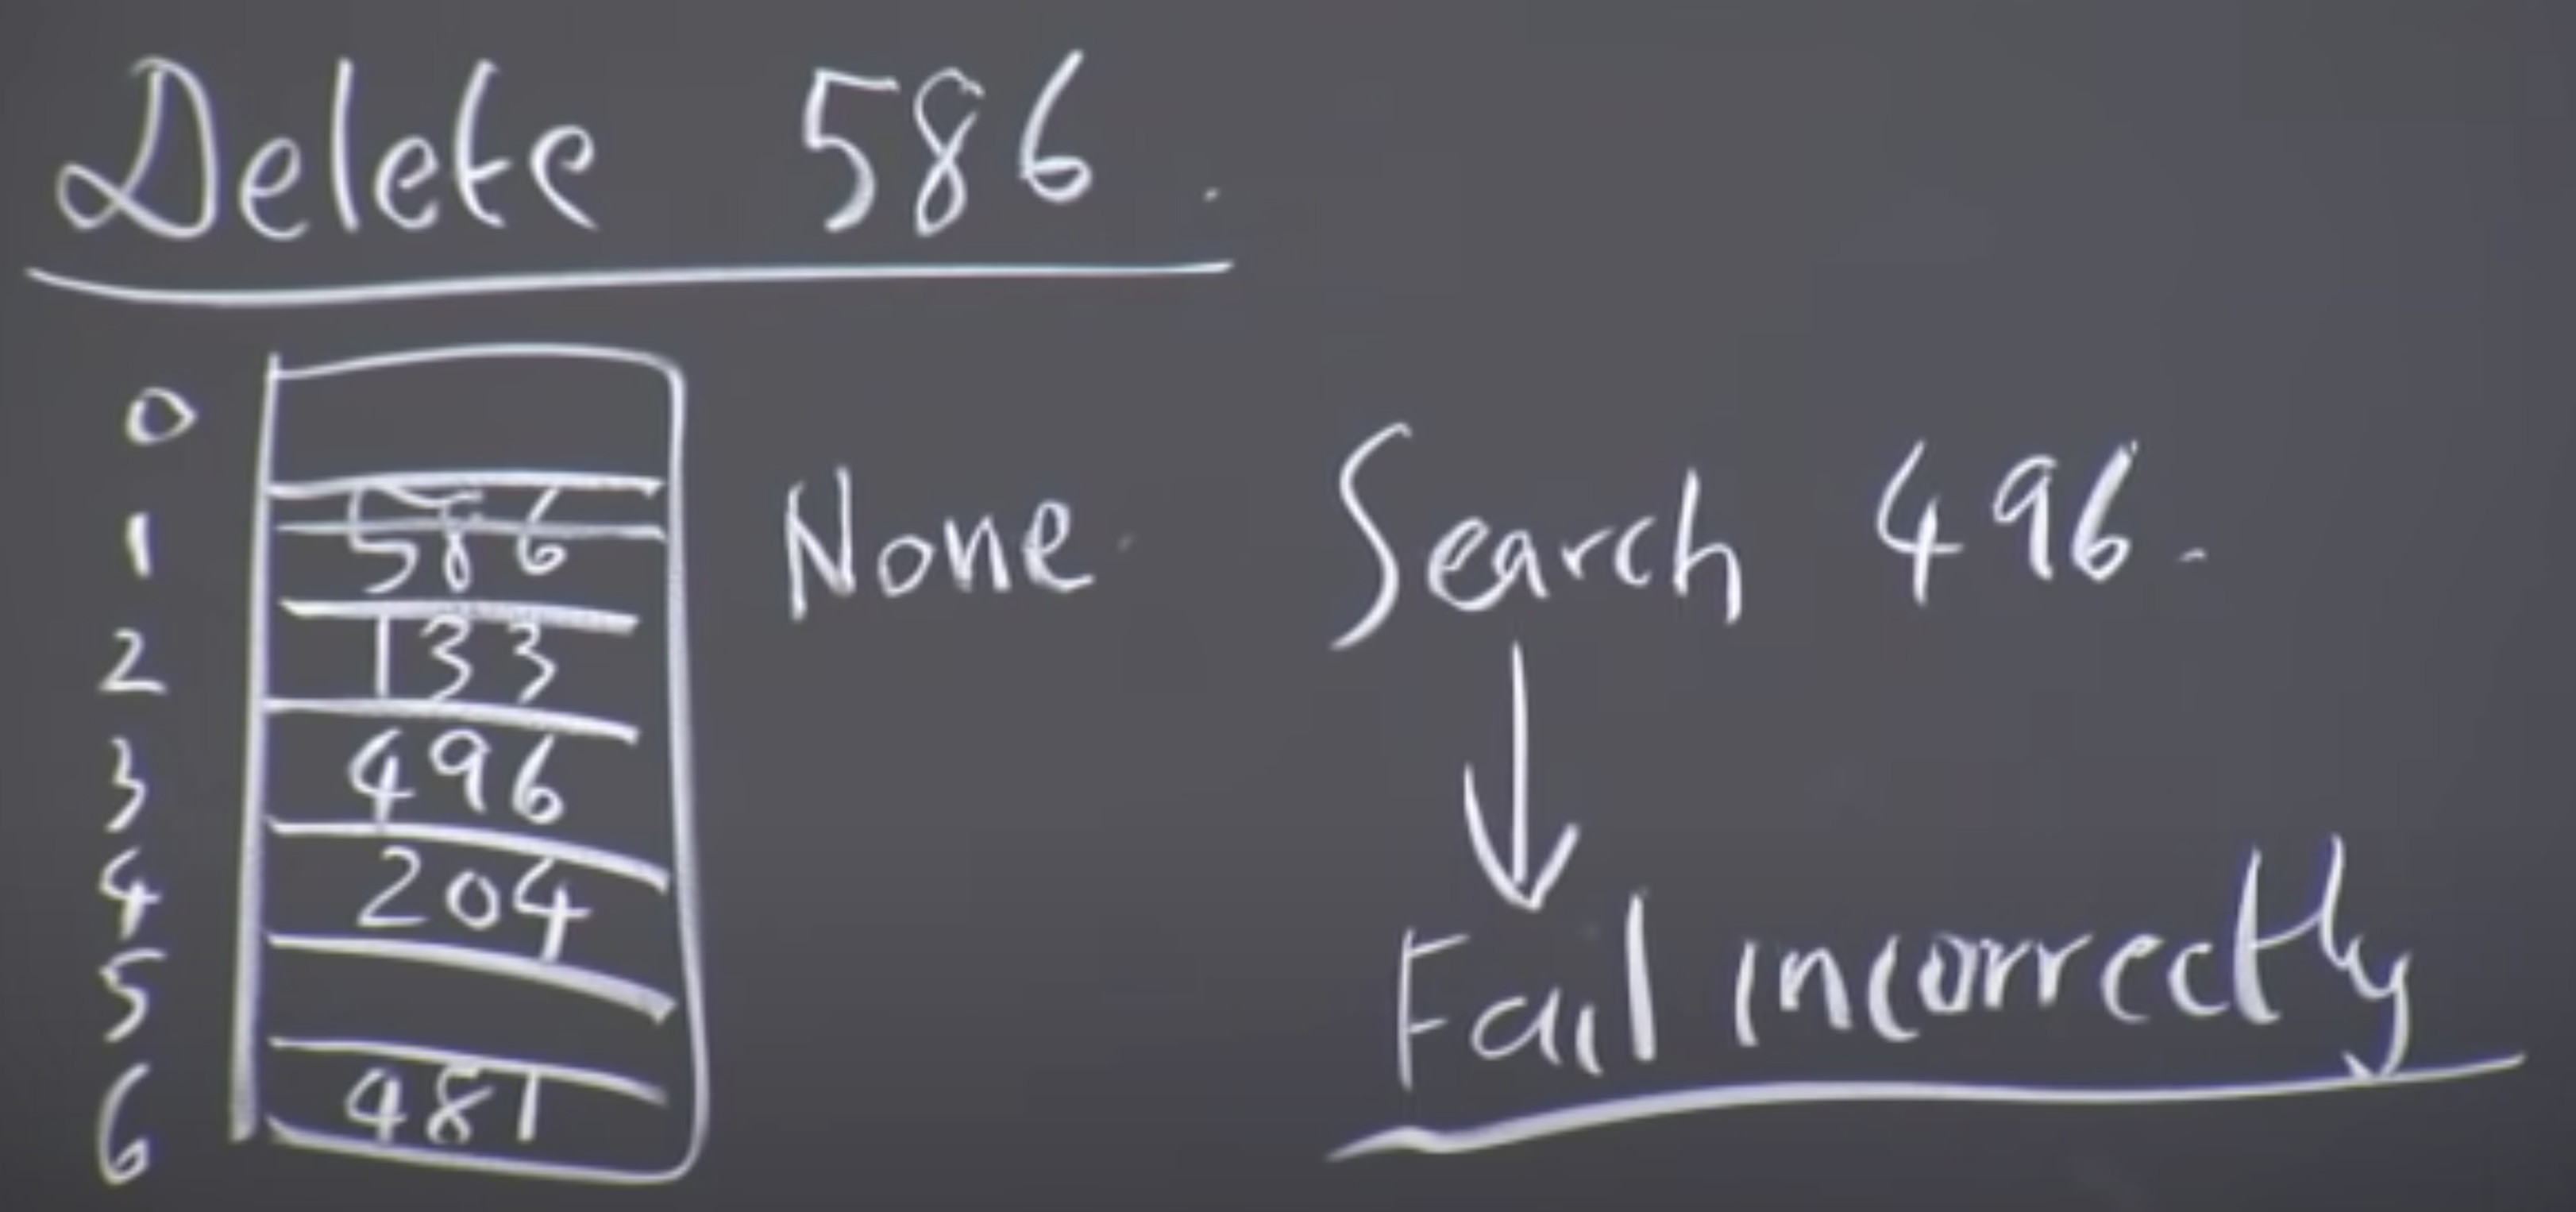 Delete 586.
0
1 586 None.
2 133
3 496
4 204
5
6 481
Search 496.
Fail incorrectly